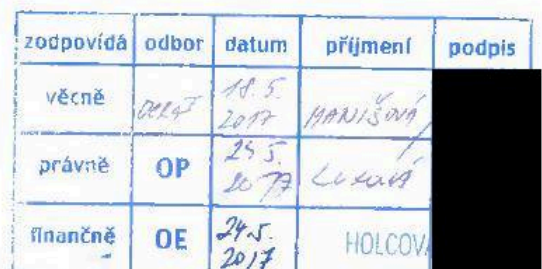 zodpovídá odbor datum příjmení podpis
věcně 18. 5. 2017 HANIŠOVÁ
právně OP 2017
finančně OE 24.5. 2017 HOLCOV